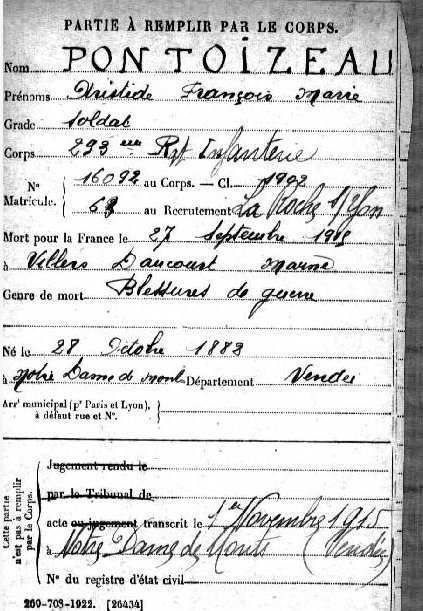 PARTIE À REMPLIR PAR LE CORPS.
Nom PONTOIZEAU
Prénoms Aristide François Marie
Grade soldat
Corps 293 eme Rgt Infanterie
N° 16092 au Corps. — Cl. 1902
Matricule. 6 au Recrutement La Roche s/Yon
Mort pour la France le 27 septembre 1915
à Villers Daucourt Marne
Genre de mort Blessures de guerre
Né le 28 Octobre 1882
à Notre Dame d mont Département Vendée
Arrt municipal (pr Paris et Lyon),
à défaut rue et N°.
Cette partie
n'est pas à remplir
par le Corps.
Jugement rendu le
par le Tribunal de
acte ou jugement transcrit le 1er Novembre 1915
à Notre-Dame de Monts (Vendée)
N° du registre d'état civil
269-708-1922. [26434]